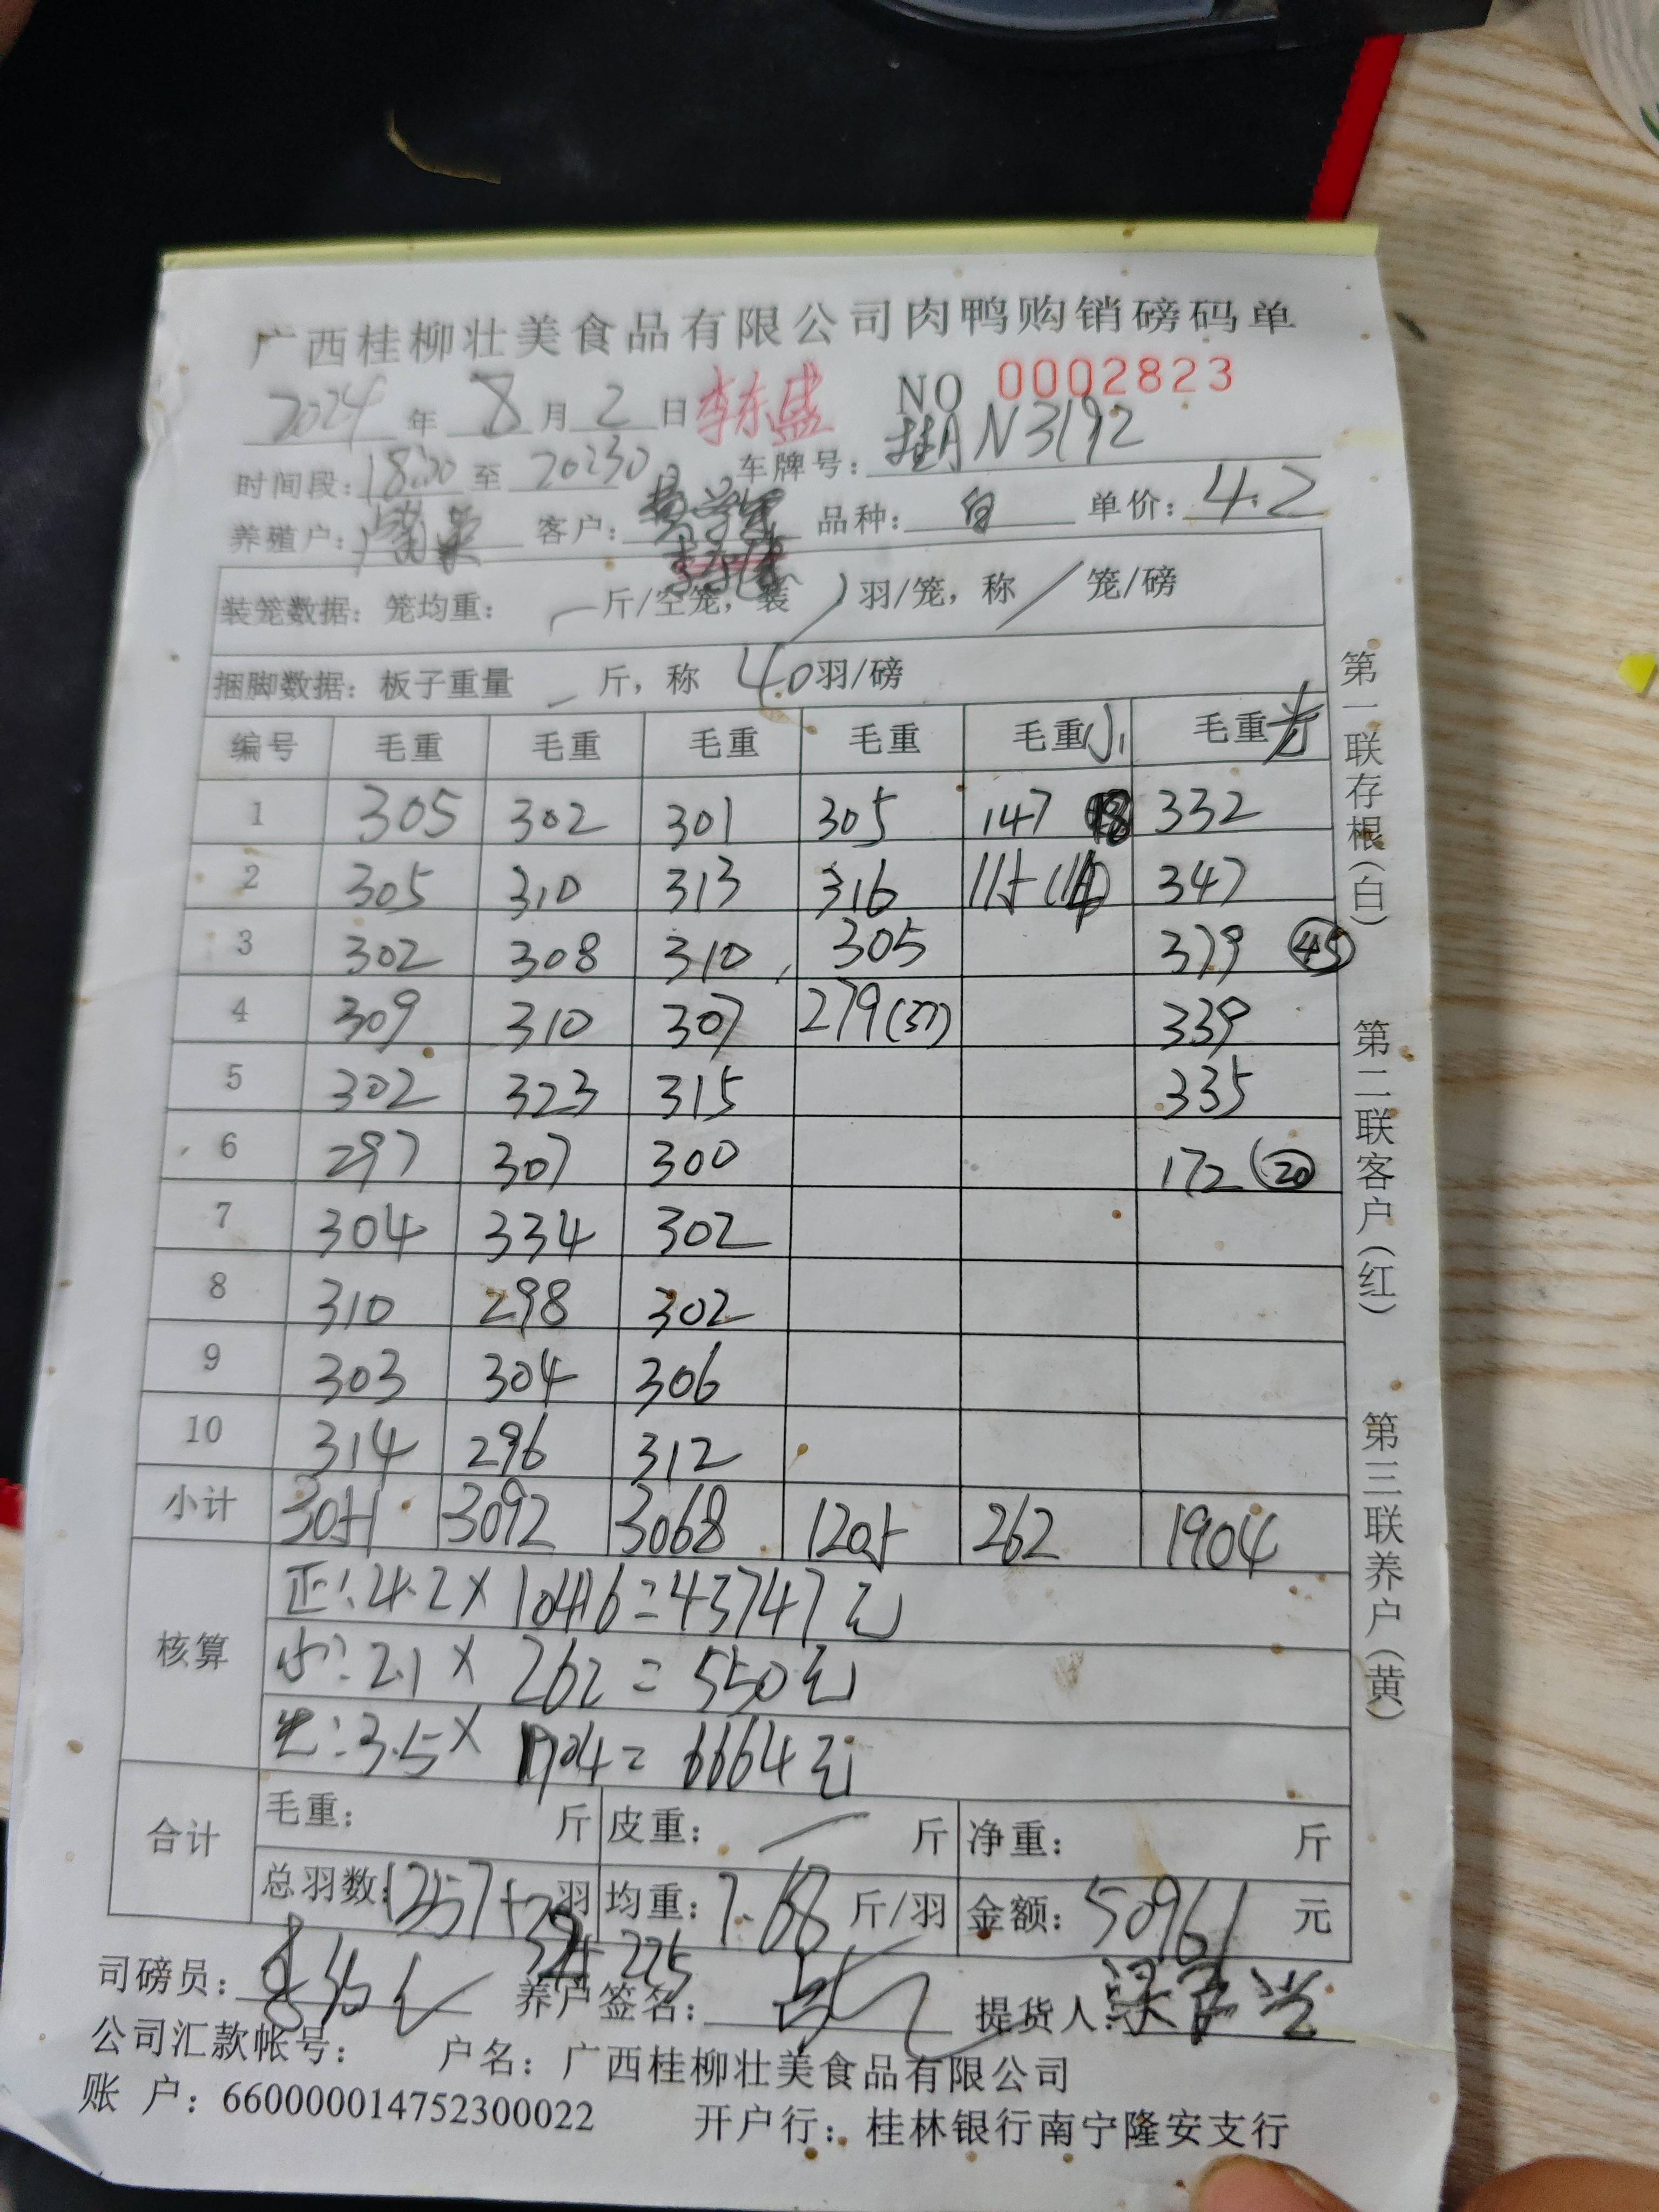 广西桂柳壮美食品有限公司肉鸭购销磅码单
2024年 8月 2日 李东盛 NO 0002823
时间段:18:00至 20:30 车牌号:桂AN3192
养殖户: 客户: 品种:白 单价:4.2
装笼数据:笼均重: 斤/空笼,装 羽/笼,称 笼/磅
捆脚数据:板子重量 斤,称 40羽/磅
编号 毛重 毛重 毛重 毛重 毛重小 毛重光
1 305 302 301 305 147 332
2 305 310 313 316 115 347
3 302 308 310 305 379 45
4 309 310 307 279(37) 339
5 302 323 315 335
6 297 307 300 172 (20)
7 304 334 302
8 310 298 302
9 303 304 306
10 314 296 312
小计 3051 3092 3068 1205 262 1904
核算 正:4.2×10416=43747元
小:2.1×262=550元
光:3.5×1904=6664元
合计 毛重: 斤 皮重: 斤 净重: 斤
总羽数:1257+ 羽 均重:7.68斤/羽 金额:50961元
225
司磅员: 养户签名: 提货人:
公司汇款帐号: 户名:广西桂柳壮美食品有限公司
账 户:660000014752300022 开户行:桂林银行南宁隆安支行
第一联存根(白) 第二联客户(红) 第三联养户(黄)